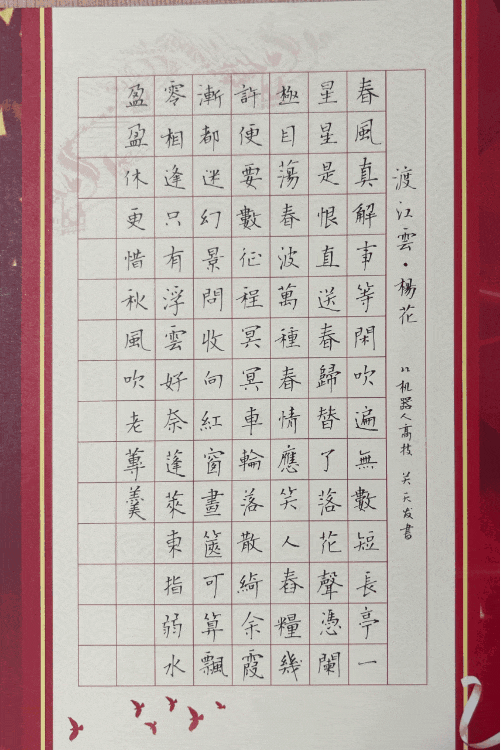 渡江雲·楊花
22机器人高技 关天发書
春風真解事等閑吹遍無數短長亭一
星星是恨直送春歸替了落花聲憑闌
極目蕩春波萬種春情應笑人舂糧幾
許便要數征程冥冥車輪落散綺余霞
漸都迷幻景問收向紅窗畫篋可算飄
零相逢只有浮雲好奈蓬萊東指弱水
盈盈休更惜秋風吹老蓴羹